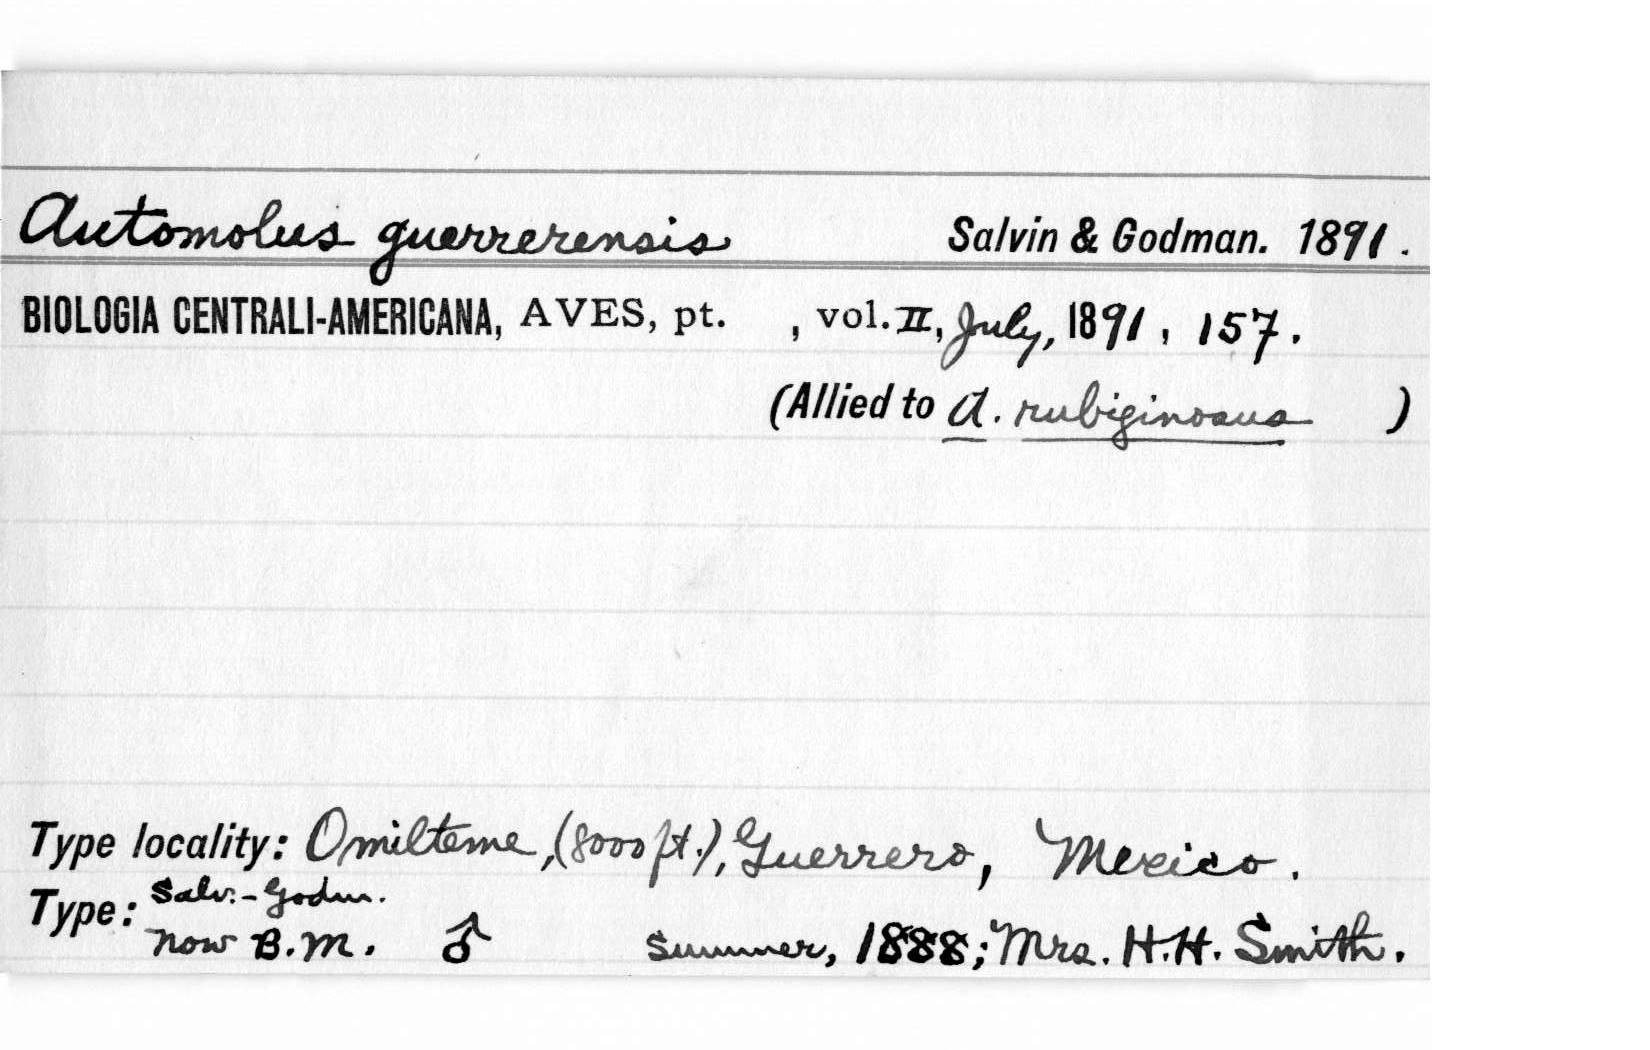 Automolus guerrerensis Salvin & Godman. 1891.
BIOLOGIA CENTRALI-AMERICANA, AVES, pt. , vol. II, July, 1891, 157.
(Allied to A. rubiginosus )
Type locality: Omilteme, (8000 ft.), Guerrero, Mexico.
Type: Salv.-Godm.
now B.M. ♂ Summer, 1888; Mrs. H.H. Smith.